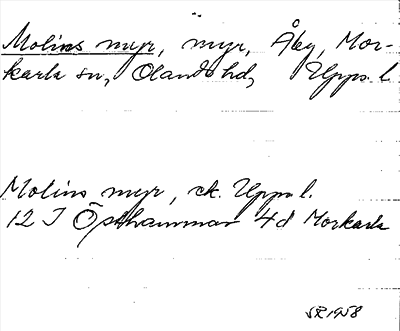 Molins myr, myr, Åby, Mor-
karla sn, Olands hd, Upps. l.
Molins myr, ek. Upps. l.
12 I Östhammar 4d Morkarla
1958